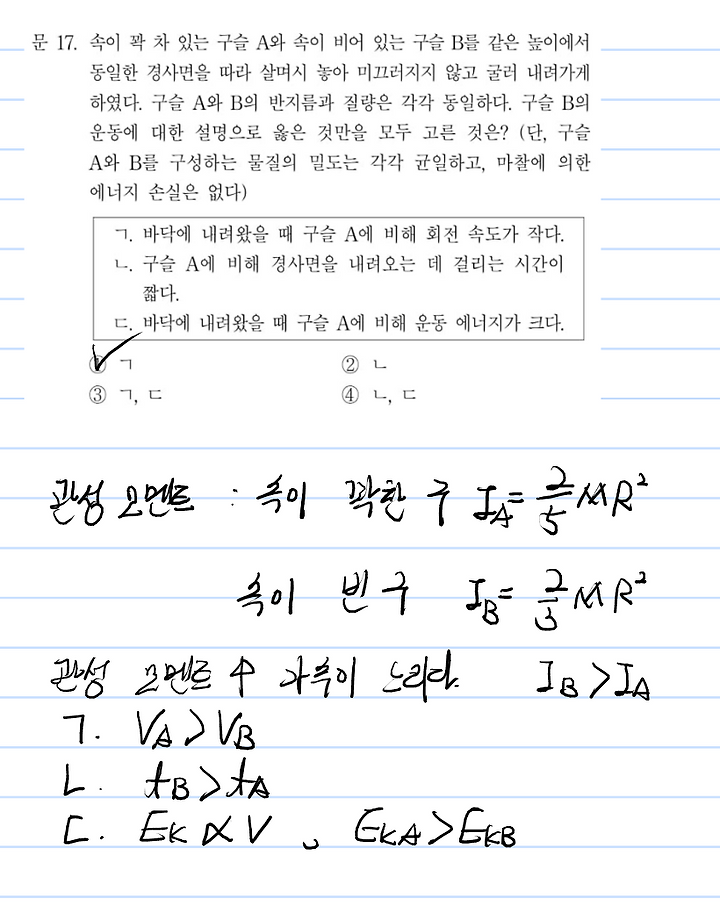 문 17. 속이 꽉 차 있는 구슬 A와 속이 비어 있는 구슬 B를 같은 높이에서
동일한 경사면을 따라 살며시 놓아 미끄러지지 않고 굴러 내려가게
하였다. 구슬 A와 B의 반지름과 질량은 각각 동일하다. 구슬 B의
운동에 대한 설명으로 옳은 것만을 모두 고른 것은? (단, 구슬
A와 B를 구성하는 물질의 밀도는 각각 균일하고, 마찰에 의한
에너지 손실은 없다)
ㄱ. 바닥에 내려왔을 때 구슬 A에 비해 회전 속도가 작다.
ㄴ. 구슬 A에 비해 경사면을 내려오는 데 걸리는 시간이
짧다.
ㄷ. 바닥에 내려왔을 때 구슬 A에 비해 운동 에너지가 크다.
① ㄱ ② ㄴ
③ ㄱ, ㄷ ④ ㄴ, ㄷ
관성 모멘트 : 속이 꽉찬 구 I_A = 2/5 MR²
속이 빈 구 I_B = 2/3 MR²
관성 모멘트 ↑ 가속이 느리다. I_B > I_A
ㄱ. V_A > V_B
ㄴ. t_B > t_A
ㄷ. E_K ∝ V, E_KA > E_KB